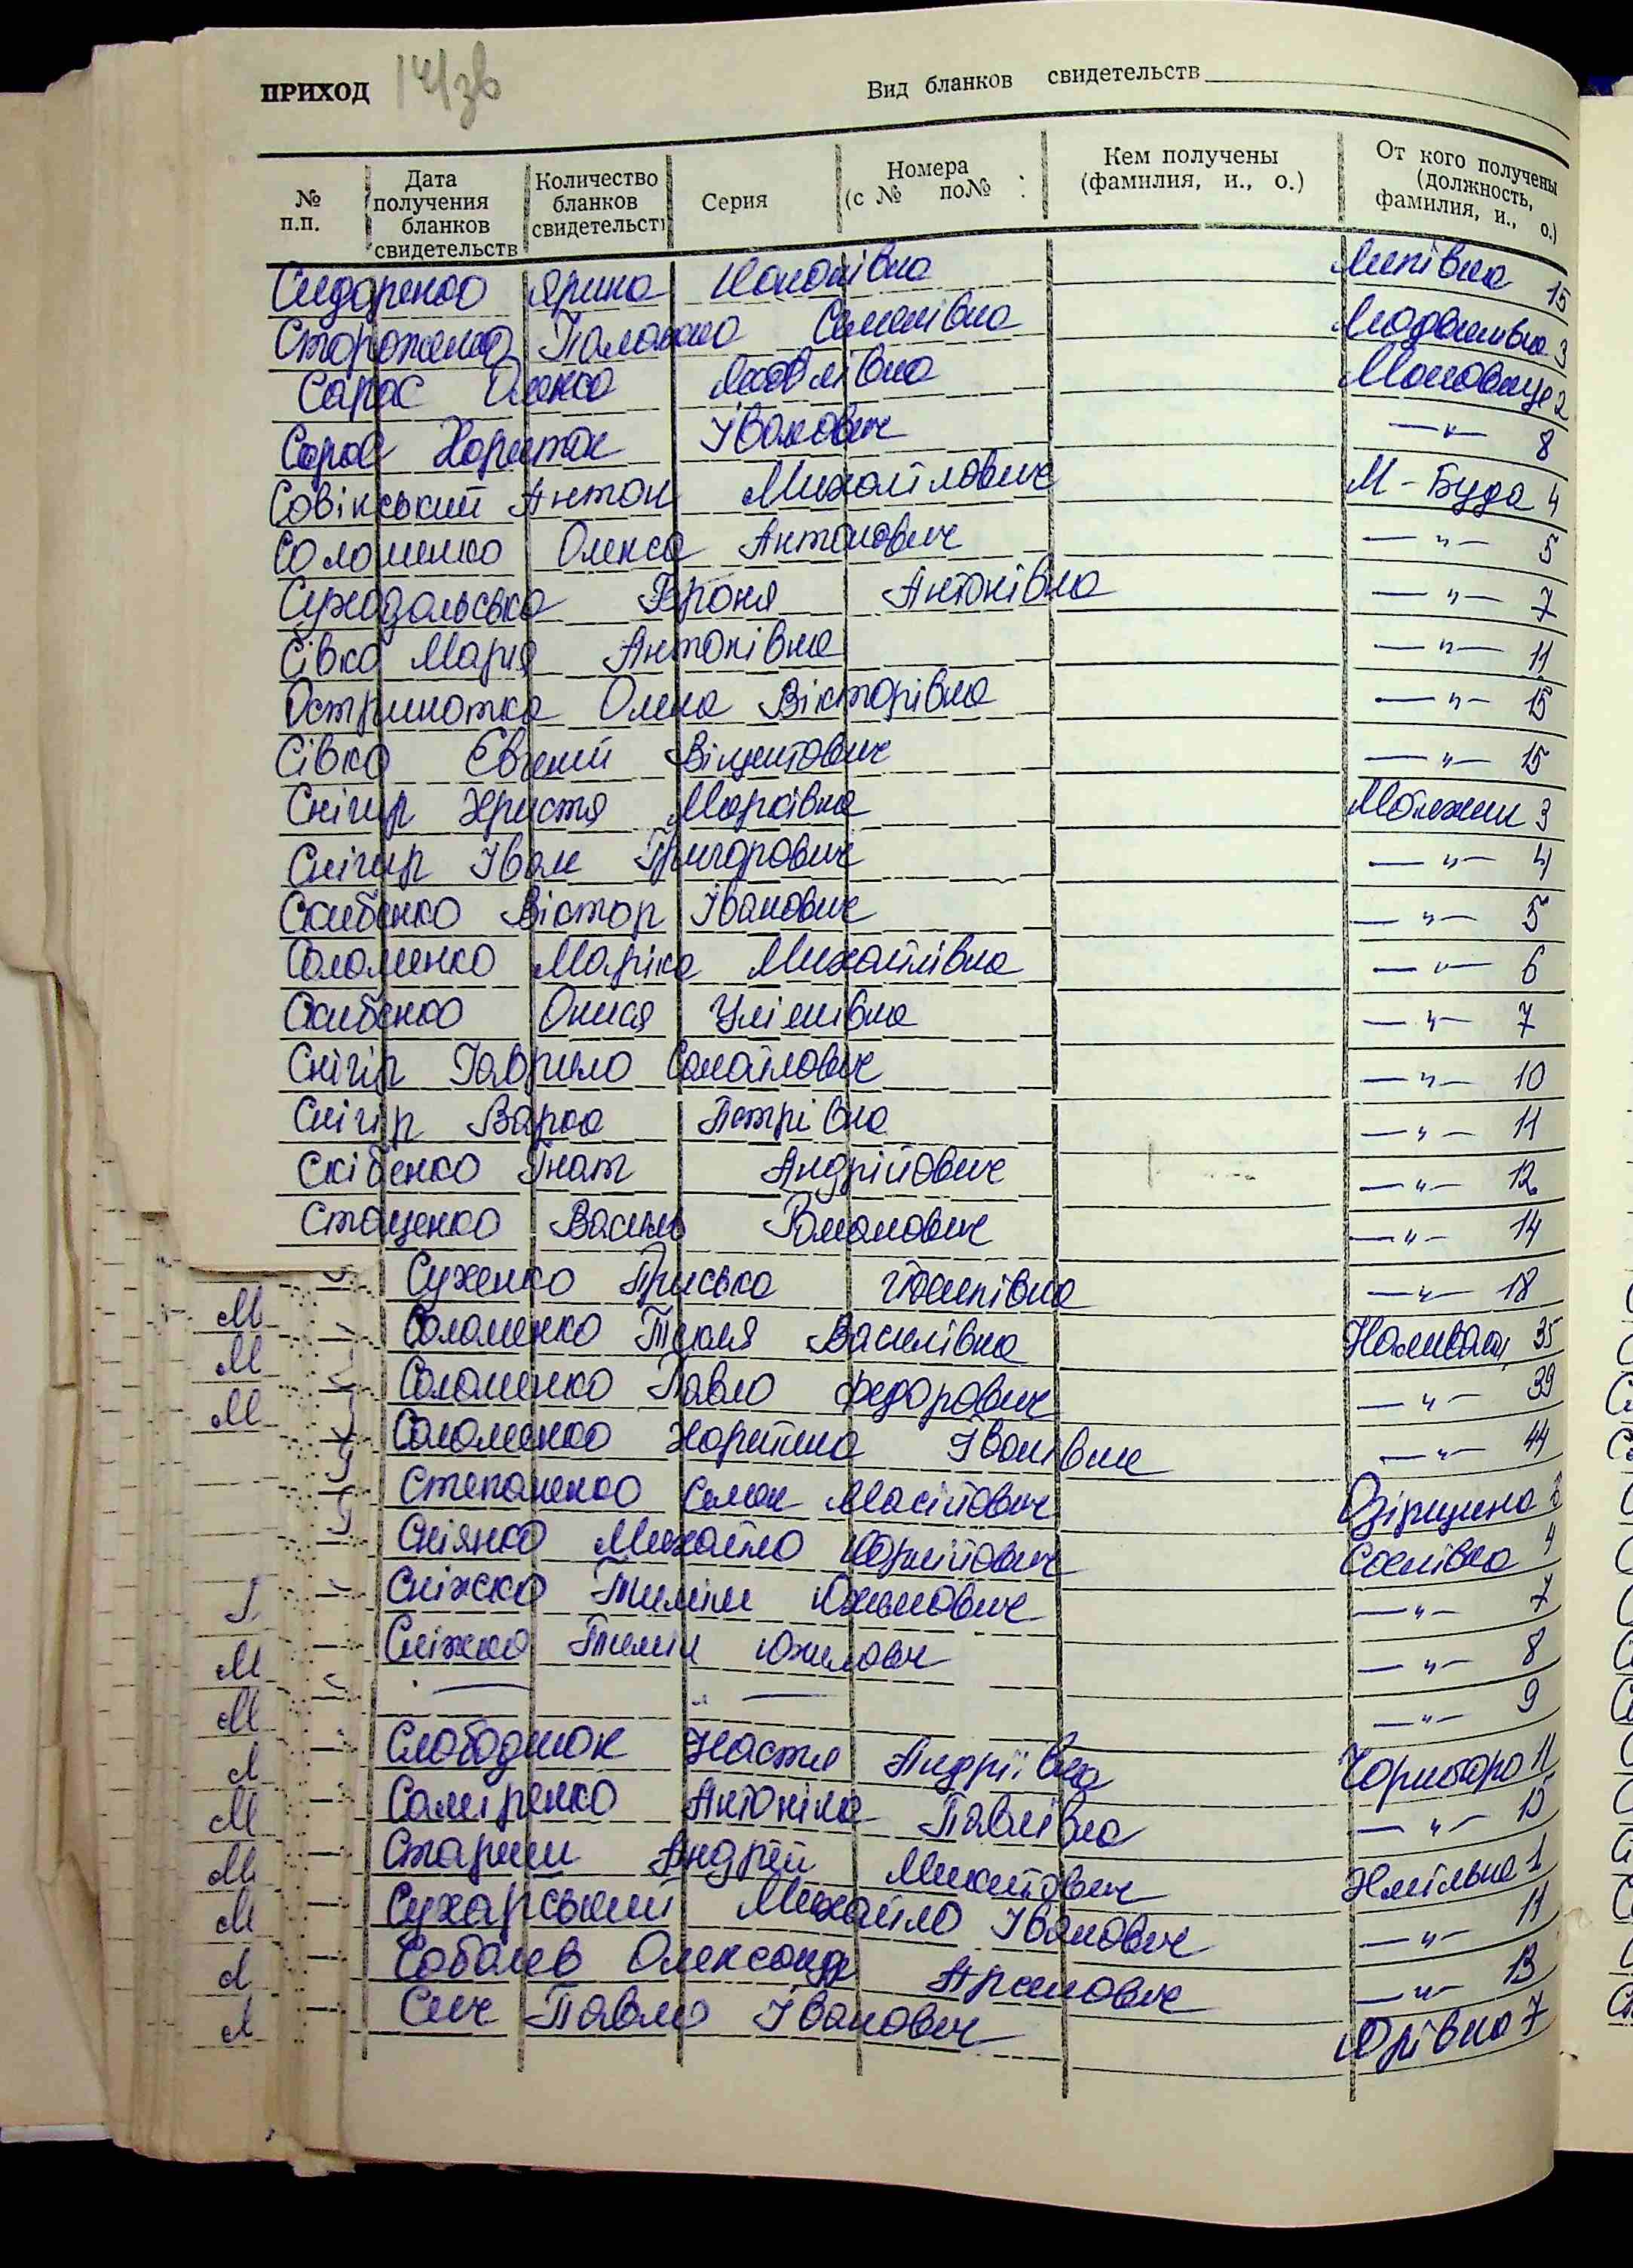 ПРИХОД 14/зв Вид бланков свидетельств
№ п.п. Дата получения бланков свидетельств Количество бланков свидетельств Серия Номера (с № по№ Кем получены (фамилия, и., о.) От кого получены (должность, фамилия, и., о.)
Сидоренко Ярина Кононівна Липівка 15
Стороженко Палажка Семенівна 3
Сарас Олекса Яковлівна Маковище 2
Харитон Іванович —"— 8
Совінський Антон Михайлович М-Буда 4
Соломенко Олекса Антонович —"— 5
Суходольська Броня Антонівна —"— 7
Сівко Мария Антонівна —"— 11
Олена Вікторівна —"— 15
Сівко Євгеній Віцентович —"— 15
Снігир Христя Марківна Мотижин 3
Снігир Іван Григорович —"— 4
Скибенко Віктор Іванович —"— 5
Соломенко Маріка Михайлівна —"— 6
Скибенко Онися Улімівна —"— 7
Снігір Гаврило Самайлович —"— 10
Снігір Варка Петрівна —"— 11
Скібенко Гнат Андрійович —"— 12
Стаценко Василь Романович —"— 14
Суженко Приська Йосипівна —"— 18
Соломенко Текля Василівна 35
Соломенко Павло Федорович —"— 39
Соломенко Харитина Іванівна —"— 44
Степаненко Семен Озірщина
Михайло Соснівка 4
Сніжко Тиміш Юхимович —"— 7
Сніжко Тиміш Юхимович —"— 8
— " — —"— 9
Слободянюк Настя Андріївна 11
Саміренко Антоніна Павлівна —"—
Стариш Андрій Микитович Хмільна 1
Сухарський Михайло Іванович —"— 11
Соболев Олександр Арсенович —"— 13
Сич Павло Іванович Юрівка 7